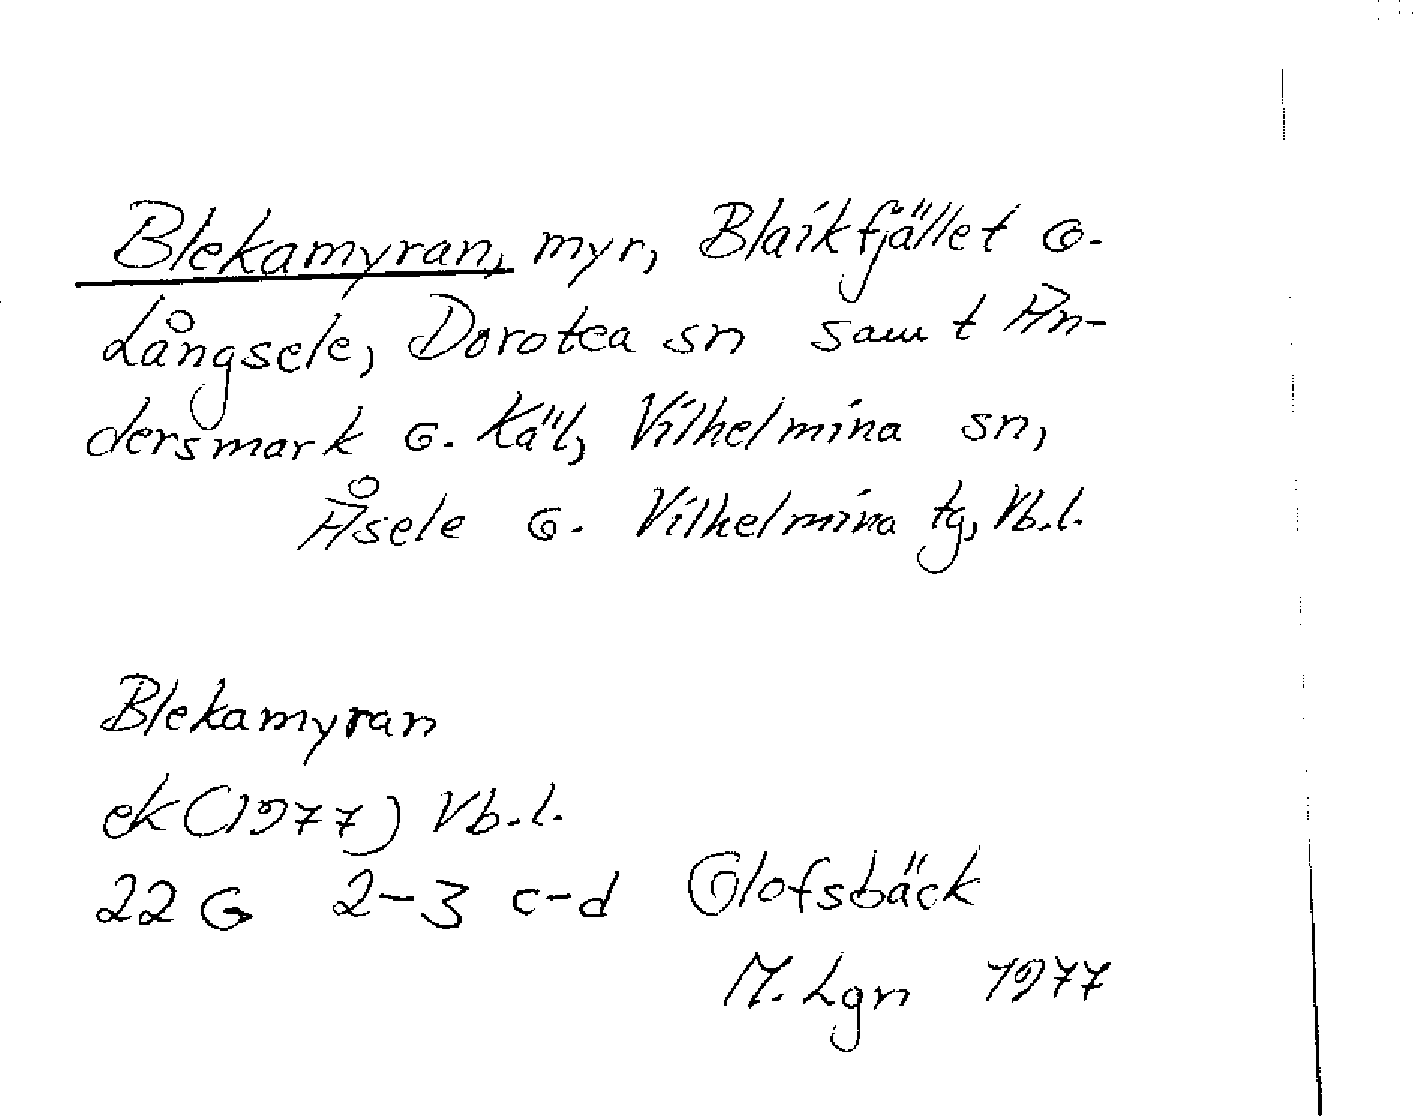 Blekamyran, myr, Blaikfjället o.
Långsele, Dorotea sn samt An-
dersmark o. Käl, Vilhelmina sn,
Åsele o. Vilhelmina tg, Vb.l.
Blekamyran
ek (1977) Vb.l.
22 G 2-3 c-d Olofsbäck
M. Lgn 1977